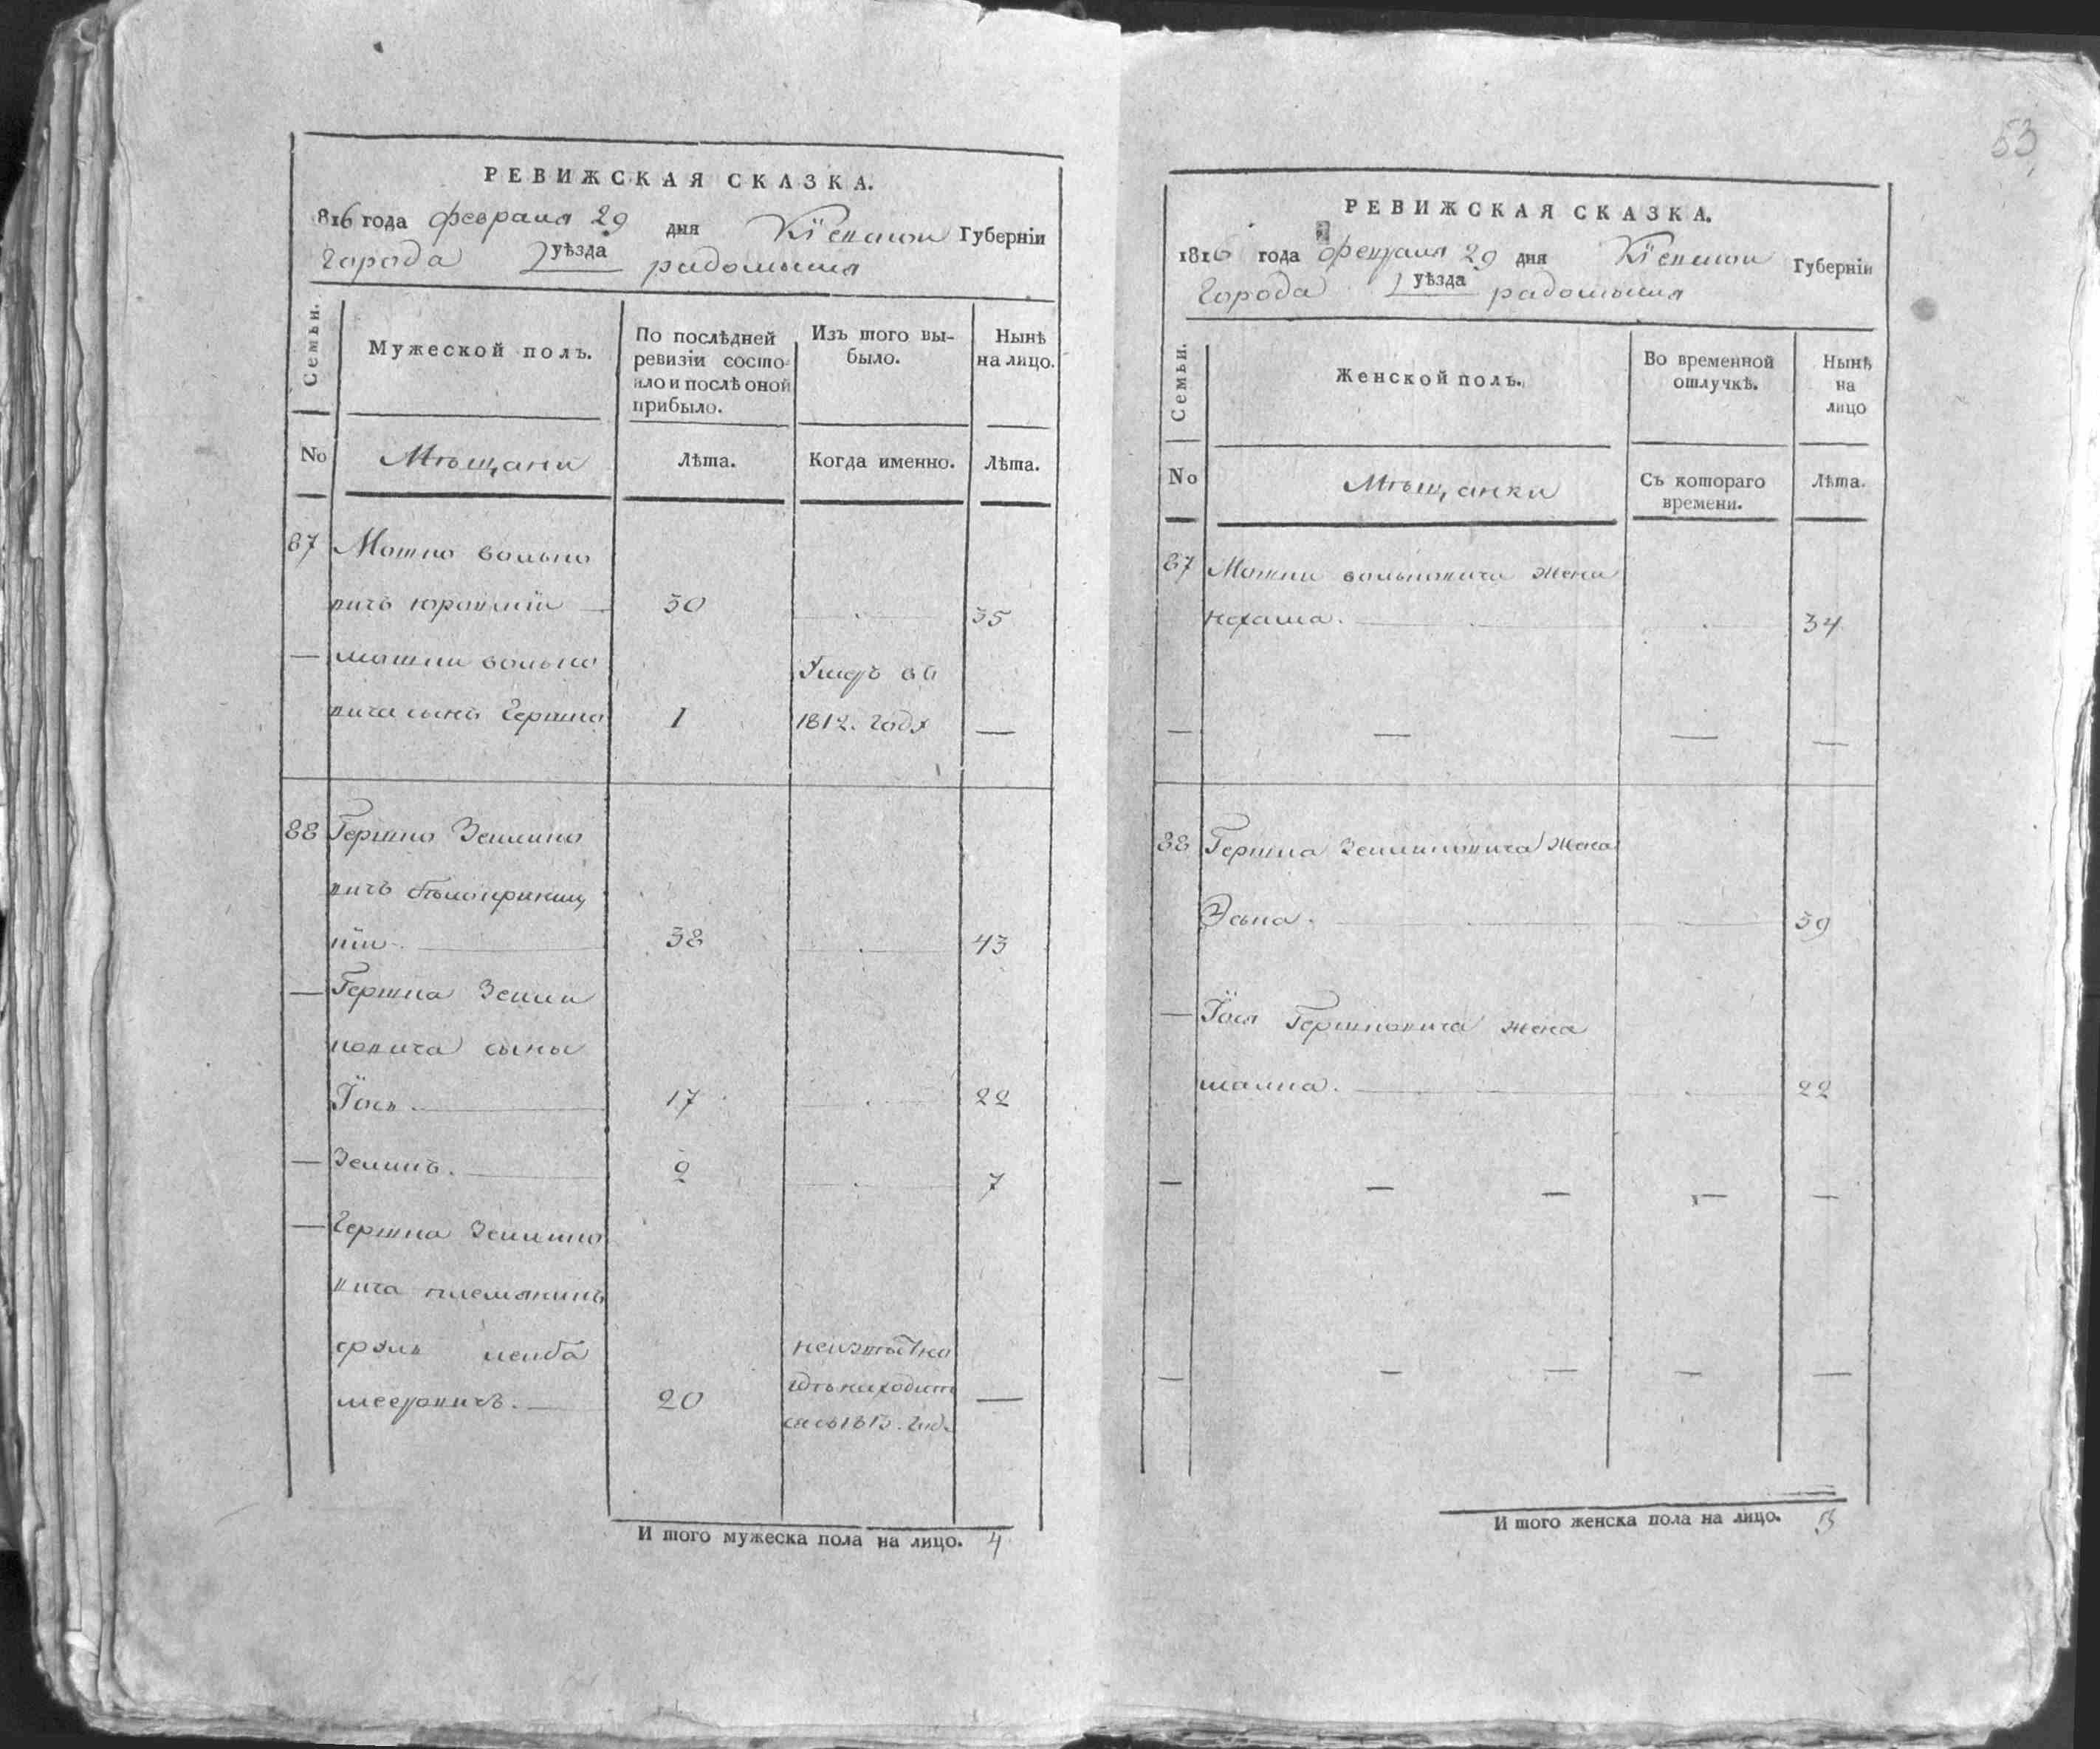 РЕВИЖСКАЯ СКАЗКА.
816 года февраля 29 дня Кїевской Губернїи
Города уѣзда радомысля
Семьи.
Мужеской полъ.
По послѣдней
ревизїи состо-
яло и послѣ оной
прибыло.
Изъ того вы-
было.
Нынѣ
на лицо.
No
Мѣщани
Лѣта.
Когда именно.
Лѣта.
87 Мошко волько
вичъ 30 35
— мошки волько Умеръ въ
вича сынъ Гершко 1 1812. годѫ —
88 Гершко Зелико
вичъ
кїи 38 43
— Гершка Зели
ковича сыны
Їось 17 22
— Зеликъ. 2 7
— Гершка Зелико
вича племяникъ
сроль лейба неизвѣстно
мееровичъ. 20 гдѣ находит —
ся съ 1813. год.
И того мужеска пола на лицо. 4
53
РЕВИЖСКАЯ СКАЗКА.
1816 года февраля 29 дня Кїевской Губернїи
Города уѣзда радомысля
Семьи.
Женской полъ.
Во временной
отлучкѣ.
Нынѣ
на
лицо
No
Мѣщанки
Съ котораго
времени.
Лѣта.
87 Мошки вольковича жена
нехама. 34
— — — —
88 Гершка Зеликовича жена
Эська. 39
— Їося Гершковича жена
малка. 22
— — — — —
— — — — —
И того женска пола на лицо. 3